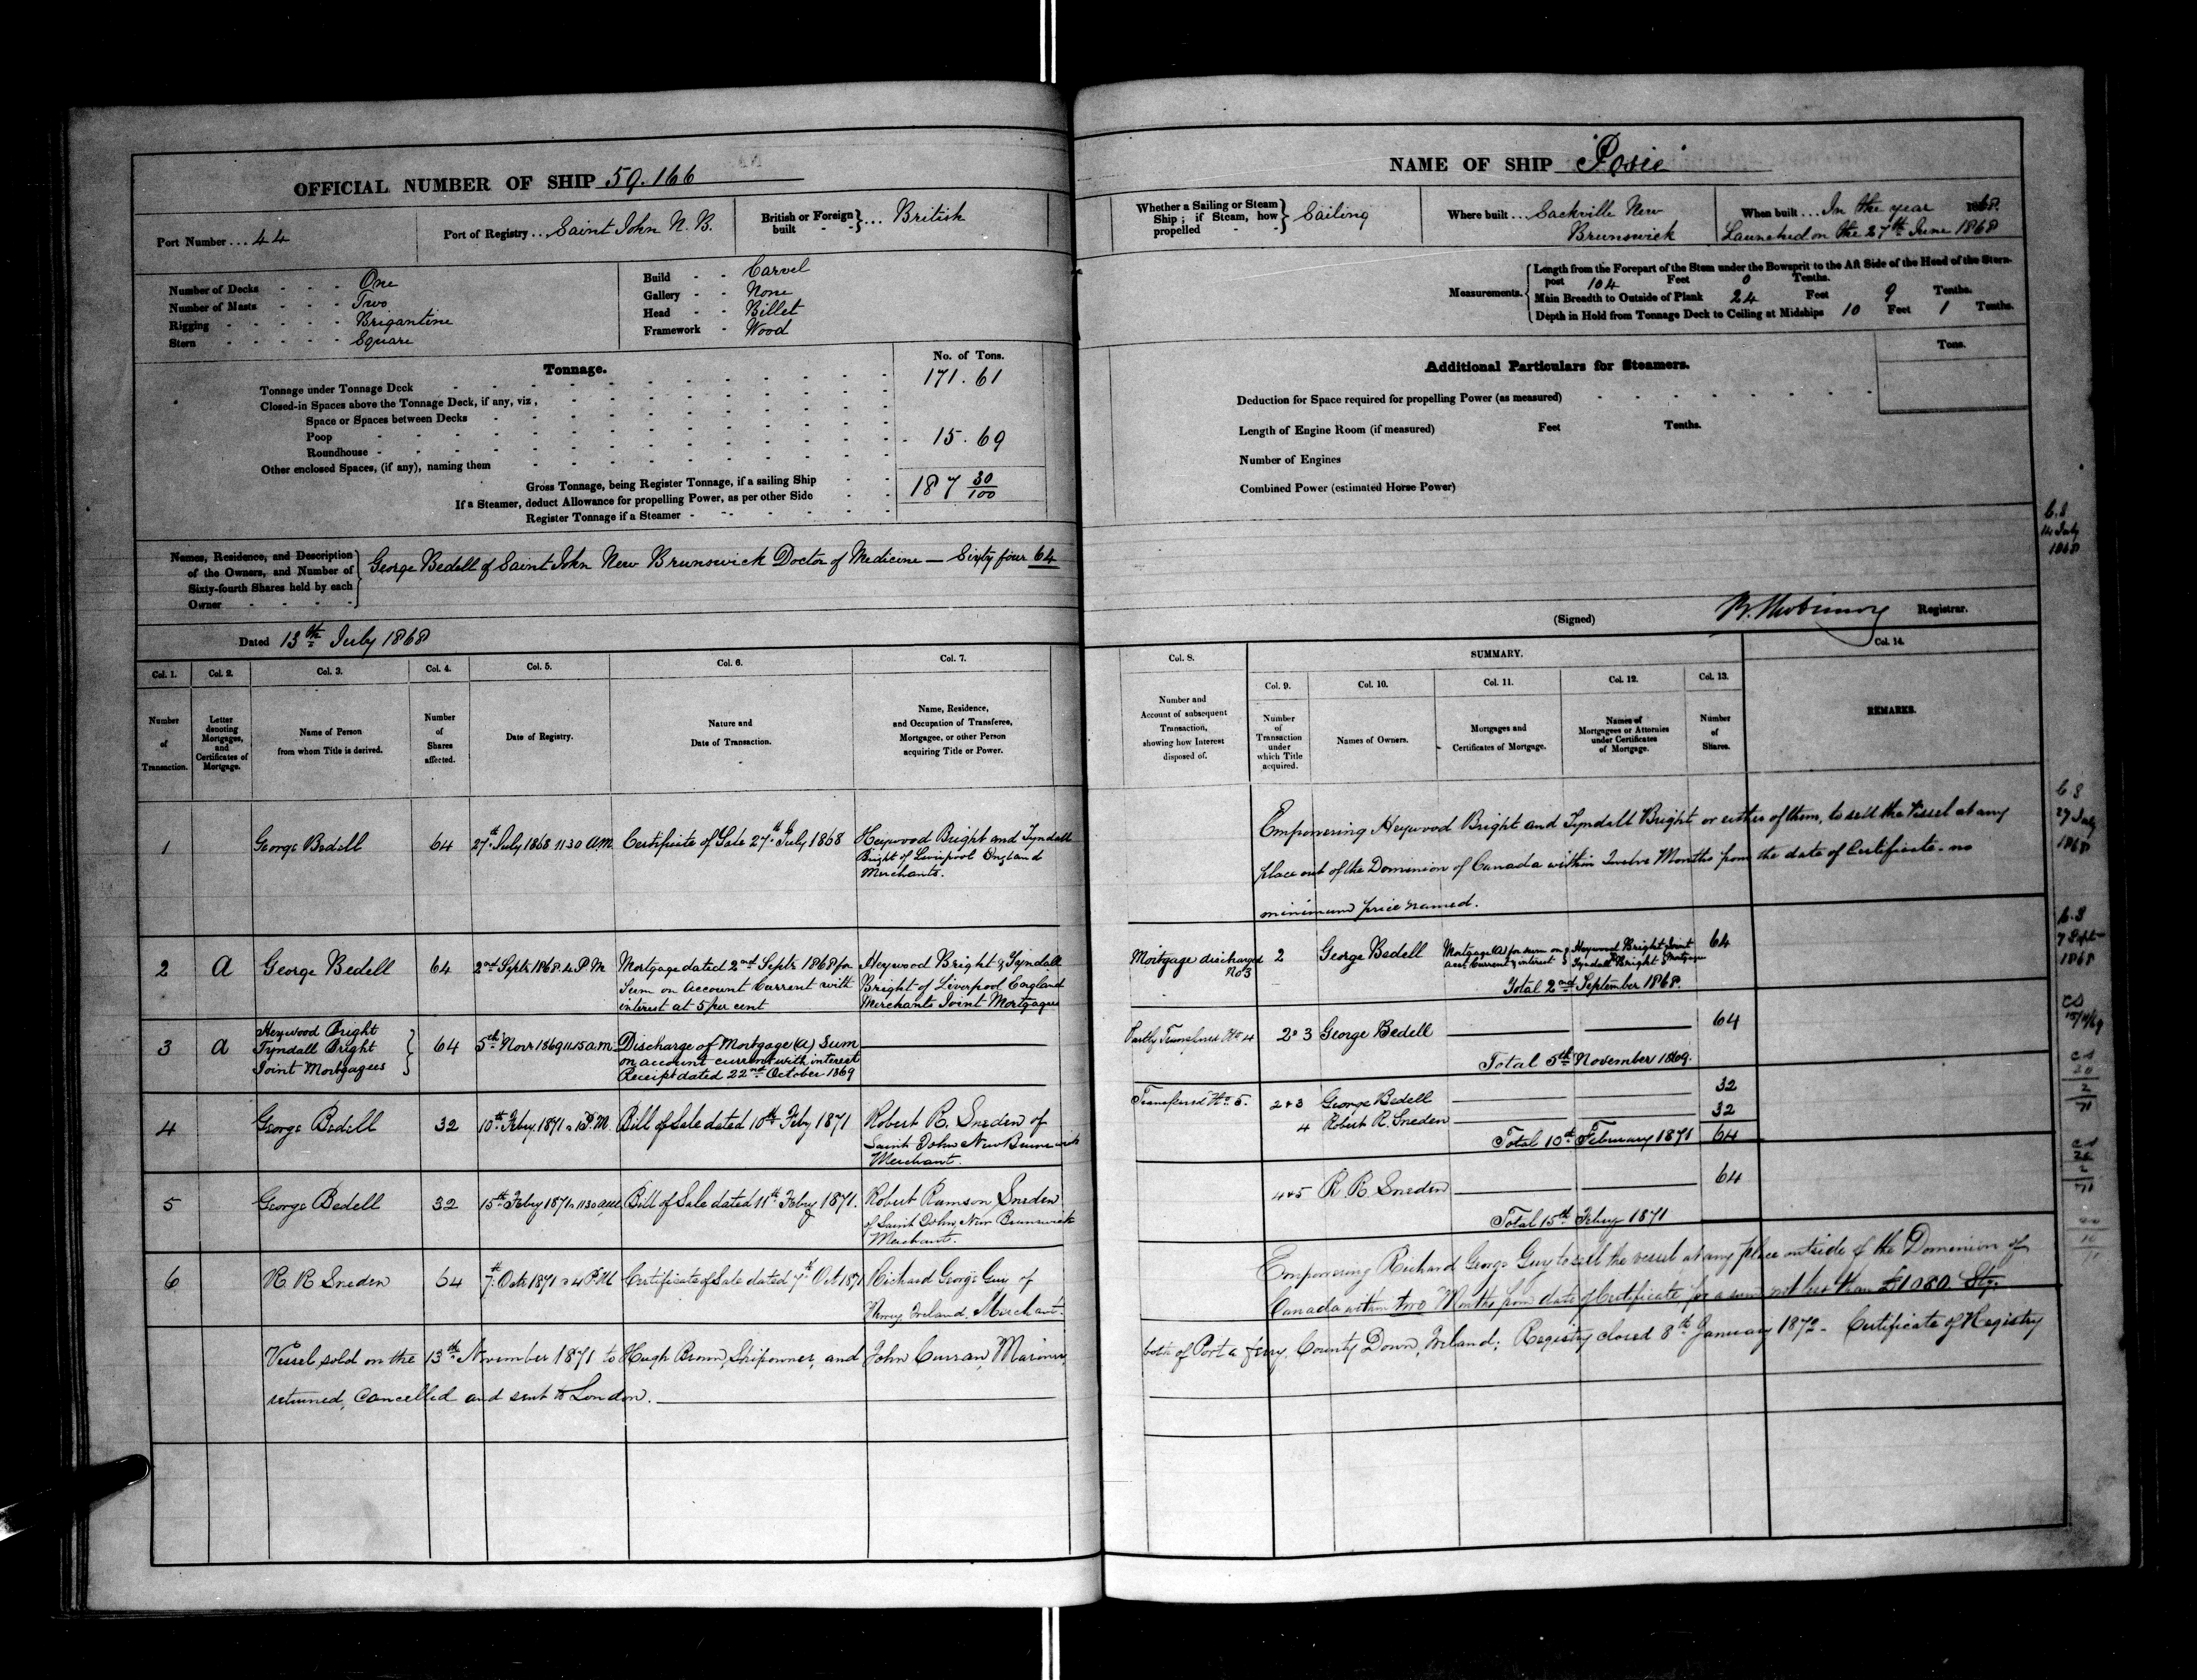 OFFICIAL NUMBER OF SHIP 59.166
Port Number ... 44
Port of Registry ... Saint John N. B.
British or Foreign built } ... British
Number of Decks - - - One
Number of Masts - - - Two
Rigging - - - - - Brigantine
Stern - - - - - Square
Build - - Carvel
Gallery - - None
Head - - Billet
Framework - Wood
Tonnage.
No. of Tons.
Tonnage under Tonnage Deck 171.61
Closed-in Spaces above the Tonnage Deck, if any, viz.,
Space or Spaces between Decks
Poop
Roundhouse - 15.69
Other enclosed Spaces, (if any), naming them
Gross Tonnage, being Register Tonnage, if a sailing Ship 187 30/100
If a Steamer, deduct Allowance for propelling Power, as per other Side
Register Tonnage if a Steamer -
Names, Residence, and Description
of the Owners, and Number of
Sixty-fourth Shares held by each
Owner
George Bedell of Saint John New Brunswick Doctor of Medicine — Sixty four 64
Dated 13th July 1868
Col. 1. Col. 2. Col. 3. Col. 4. Col. 5. Col. 6. Col. 7.
Number of Transaction.
Letter denoting Mortgages, and Certificates of Mortgage.
Name of Person from whom Title is derived.
Number of Shares affected.
Date of Registry.
Nature and Date of Transaction.
Name, Residence, and Occupation of Transferee, Mortgagee, or other Person acquiring Title or Power.
1 George Bedell 64 27th July 1868 11 30 A.M. Certificate of Sale 27th July 1868 Heywood Bright and Tyndall
Bright of Liverpool England
Merchants.
2 A George Bedell 64 2nd Septr 1868 4 P.M Mortgage dated 2nd Septr 1868 for Heywood Bright & Tyndall
Sum on Account Current with Bright of Liverpool England
interest at 5 per cent Merchants Joint Mortgagees
3 A Heywood Bright
Tyndall Bright
Joint Mortgagees } 64 5th Novr 1869 11.15 a.m. Discharge of Mortgage (A) Sum
on account current with interest
Receipt dated 22nd October 1869
4 George Bedell 32 10th Feby. 1871 1 P.M. Bill of Sale dated 10th Feby 1871 Robert R. Sneden of
Saint John New Brunswick
Merchant.
5 George Bedell 32 15th Feby 1871 11 30 a.m. Bill of Sale dated 11th Feby 1871. Robert Ramson Sneden
of Saint John, New Brunswick
Merchant.
6 R. R Sneden 64 7th Octr 1871 4 P.M. Certificate of Sale dated 7th Oct 1871 Richard George Guy of
Newry Ireland, Merchant.
Vessel sold on the 13th November 1871 to Hugh Brown, Shipowner, and John Curran, Mariner,
returned, cancelled and sent to London.
NAME OF SHIP "Posie"
Whether a Sailing or Steam Ship; if Steam, how propelled } Sailing
Where built ... Sackville New
Brunswick
When built ... In the year 1868.
Launched on the 27th June 1868
Measurements.
Length from the Forepart of the Stem under the Bowsprit to the Aft Side of the Head of the Stern-
post 104 Feet 0 Tenths.
Main Breadth to Outside of Plank 24 Feet 9 Tenths.
Depth in Hold from Tonnage Deck to Ceiling at Midships 10 Feet 1 Tenths.
Tons.
Additional Particulars for Steamers.
Deduction for Space required for propelling Power (as measured)
Length of Engine Room (if measured) Feet Tenths.
Number of Engines
Combined Power (estimated Horse Power)
C.S
14 July
1868
(Signed) Registrar.
Col. 8. SUMMARY. Col. 14.
Col. 9. Col. 10. Col. 11. Col. 12. Col. 13.
Number and Account of subsequent Transaction, showing how Interest disposed of.
Number of Transaction under which Title acquired.
Names of Owners.
Mortgages and Certificates of Mortgage.
Names of Mortgagees or Attornies under Certificates of Mortgage.
Number of Shares.
REMARKS.
Empowering Heywood Bright and Tyndall Bright or either of them, to sell the Vessel at any
place out of the Dominion of Canada within Twelve Months from the date of Certificate - no
minimum price named.
C S
27 July
1868
Mortgage discharged No 3 2 George Bedell Mortgage (A) for sum on Acct Current & interest Heywood Bright Joint Tyndall Bright 64
Total 2nd September 1868.
C.S
7 Sept
1868
Partly Transferred No 4 2 & 3 George Bedell 64
Total 5th November 1869.
Transferred No 5. 2 & 3 George Bedell 32
4 Robert R. Sneden 32
Total 10th February 1871 64
4 & 5 R R Sneden 64
Total 15th Feby 1871
Empowering Richard George Guy to sell the vessel at any place outside of the Dominion of
Canada within two Months from date of Certificate, for a sum not less than £1080. Stg.
both of Porta ferry, County Down, Ireland; Registry closed 8th January 1872. Certificate of Registry